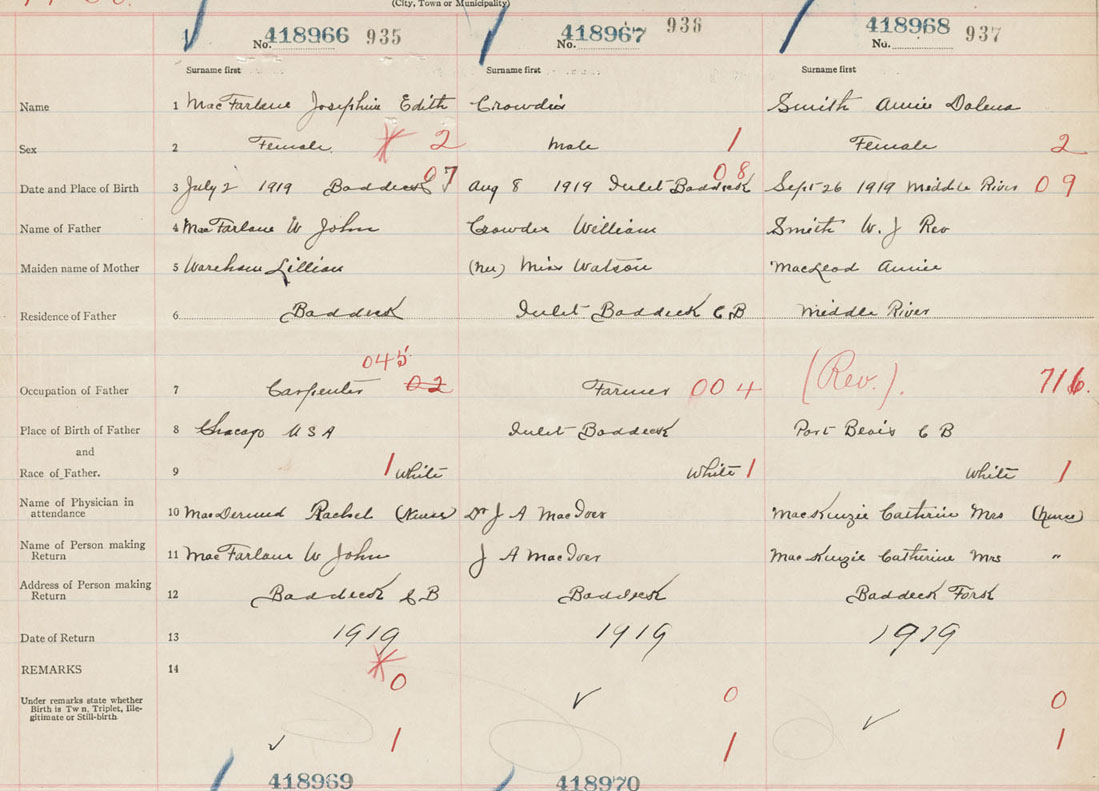 (City, Town or Municipality)
No. 418966 935 No. 418967 936 No. 418968 937
Surname first Surname first Surname first
Name 1 MacFarlane Josephine Edith Crowdis Smith Annie Dolena
Sex 2 Female 2 Male 1 Female 2
07 08
Date and Place of Birth 3 July 2 1919 Baddeck Aug 8 1919 Inlet Baddeck Sept 26 1919 Middle River 09
Name of Father 4 MacFarlane W John Crowdis William Smith W. J Rev
Maiden name of Mother 5 Wareham Lillian (nee) Miss Watson MacLeod Annie
Residence of Father 6 Baddeck Inlet Baddeck C B Middle River
045
Occupation of Father 7 Carpenter 02 Farmer 004 (Rev.). 716.
Place of Birth of Father 8 Chacago U S A Inlet Baddeck Port C B
and
Race of Father. 9 1 White White 1 White 1
Name of Physician in
attendance 10 MacDermid Rachel (Nurse) Dr J A MacIver MacKenzie Catherine Mrs (Nurse)
Name of Person making
Return 11 MacFarlane W John J A MacIver MacKenzie Catherine Mrs "
Address of Person making
Return 12 Baddeck C B Baddeck Baddeck Fork
Date of Return 13 1919 1919 1919
REMARKS 14
0 0 0
Under remarks state whether
Birth is Tw n, Triplet, Ille-
gitimate or Still-birth
1 1 1
418969 418970